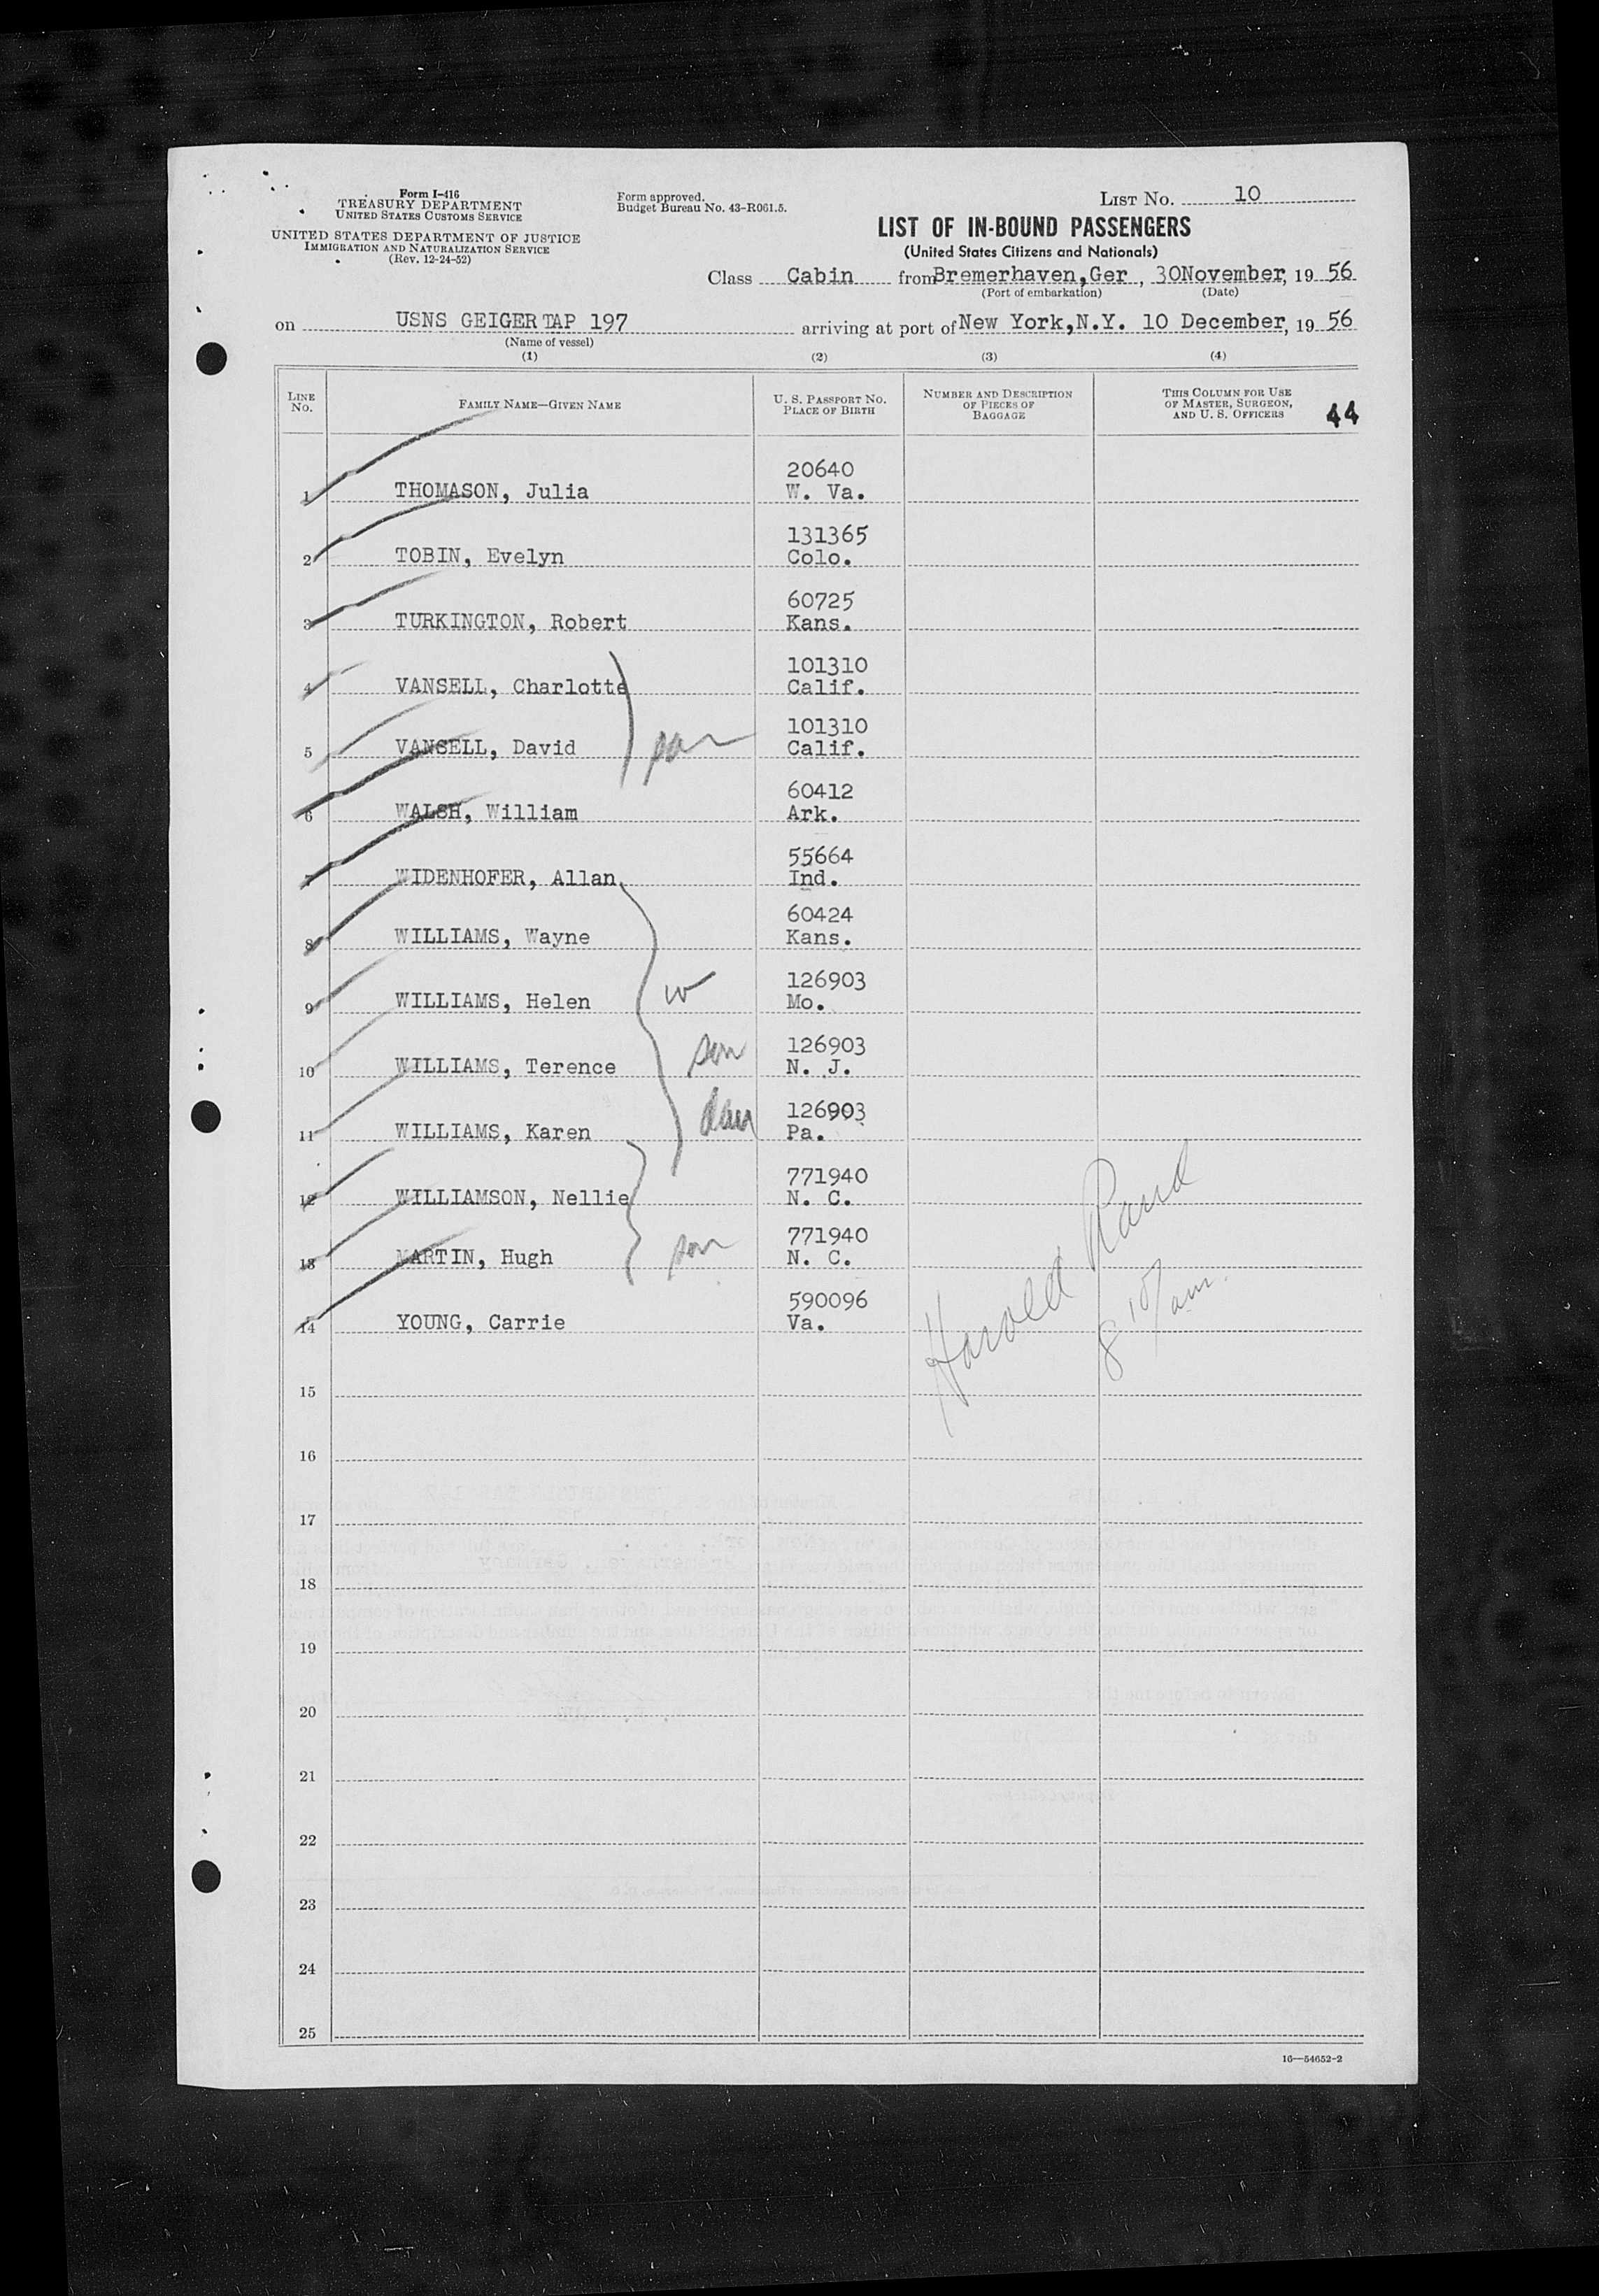 Form I-416
TREASURY DEPARTMENT
UNITED STATES CUSTOMS SERVICE
UNITED STATES DEPARTMENT OF JUSTICE
IMMIGRATION AND NATURALIZATION SERVICE
(Rev. 12-24-52)
Form approved.
Budget Bureau No. 43-R061.5.
LIST NO. 10
LIST OF IN-BOUND PASSENGERS
(United States Citizens and Nationals)
Class Cabin from Bremerhaven,Ger , 30November, 19 56
(Port of embarkation) (Date)
on USNS GEIGER TAP 197 arriving at port of New York,N.Y. 10 December, 19 56
(Name of vessel)
(1) (2) (3) (4)
LINE NO. FAMILY NAME—GIVEN NAME U. S. PASSPORT NO. PLACE OF BIRTH NUMBER AND DESCRIPTION OF PIECES OF BAGGAGE THIS COLUMN FOR USE OF MASTER, SURGEON, AND U. S. OFFICERS 44
20640
1 THOMASON, Julia W. Va.
131365
2 TOBIN, Evelyn Colo.
60725
3 TURKINGTON, Robert Kans.
101310
4 VANSELL, Charlotte Calif.
101310
5 VANSELL, David Calif.
60412
6 WALSH, William Ark.
55664
7 WIDENHOFER, Allan Ind.
60424
8 WILLIAMS, Wayne Kans.
126903
9 WILLIAMS, Helen w Mo.
126903
10 WILLIAMS, Terence son N. J.
126903
11 WILLIAMS, Karen dau Pa.
771940
12 WILLIAMSON, Nellie N. C.
771940
13 MARTIN, Hugh son N. C.
590096
14 YOUNG, Carrie Va.
Harold Rand
15
16
17
18
19
20
21
22
23
24
25
16—54652-2